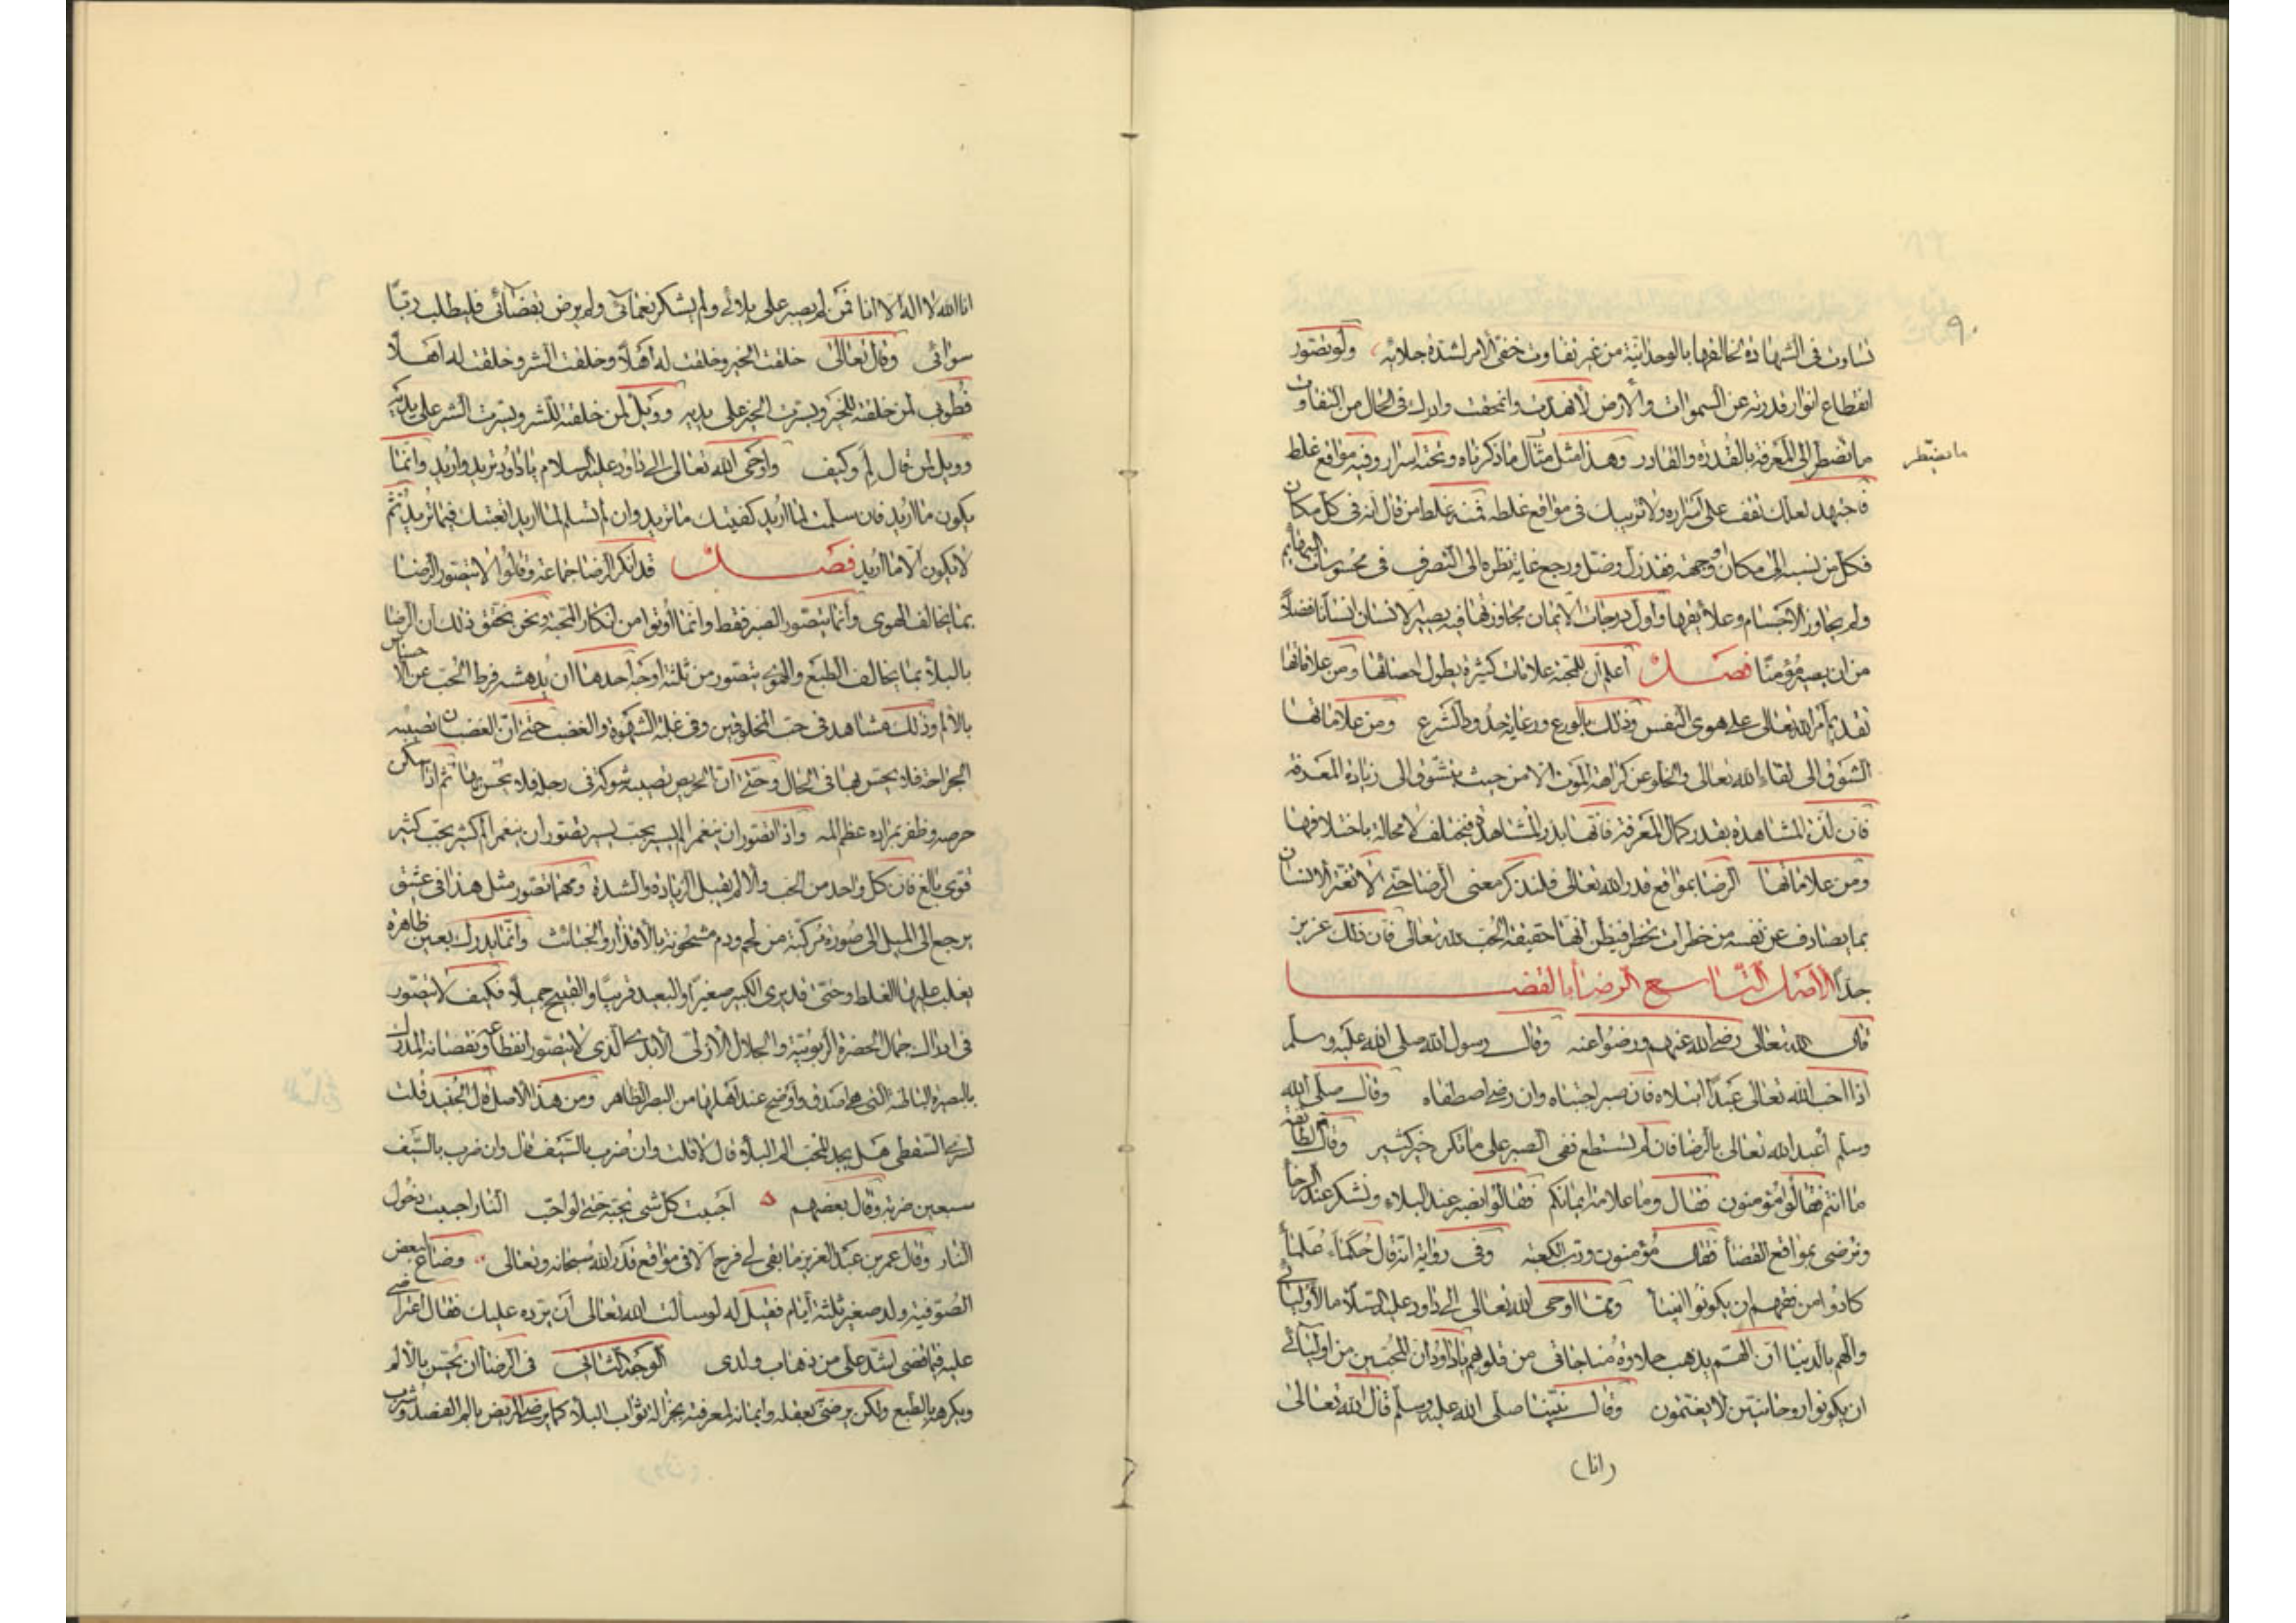 ٩٠
تساوت فى الشهادة لخالقها بالوحدانية من غير تفاوت خفى الامر لشدة جلائه ولو تصور
انقطاع انوار قدرته عن السموات والارض لانهدت وانمحقت وادرك فى الحال من التفاوت
ما تضطر الى المعرفة بالقدرة والقادر وهذا مثل مثال ما ذكرناه وتحته اسرار وفيه مواقع غلط
ما تضطر
فاجتهد لعلك تقف على اسراره ولا تزيبك فى مواقع غلطه فمنه غلط من قال انه فى كل مكان
فكل من نسبه الى مكان او جهة فقد زل وضل ورجع غاية نظره الى التصرف فى محسوسات البهائم
ولم يجاوز الاجسام وعلايقها واول درجات الايمان مجاوزتها فبه يصير الانسان انسانا فضلا
من ان يصير مؤمنا فصل اعلم ان للمحبة علامات كثيرة يطول احصائها ومن علاماتها
تقديم امر الله تعالى على هوى النفس وذلك بالورع ورعاية حدود الشرع ومن علاماتها
الشوق الى لقاء الله تعالى والخلو عن كراهة الموت الا من حيث يتشوق الى زيادة المعرفة
فان لذة المشاهدة بقدر كمال المعرفة فانها بذر المشاهدة فتختلف لا محالة باختلافها
ومن علاماتها الرضا بمواقع قدر الله تعالى فلنذكر معنى الرضا حتى لا تغتر الانسان
بما يصادف عن نفسه من خطرات تخطر فيظن انها حقيقة الحب لله تعالى فان ذلك عزيز
جدا الاصل التاسع الرضا بالقضا
قال الله تعالى رضى الله عنهم ورضوا عنه وقال رسول الله صلى الله عليه وسلم
اذا احب الله تعالى عبدا ابتلاه فان صبر اجتباه وان رضى اصطفاه وقال صلى الله
وسلم اعبد الله تعالى بالرضا فان لم تستطع ففى الصبر على ما تكره خير كثير وقال لطائفة
ما انتم فقالوا مؤمنون فقال وما علامة ايمانكم فقالوا نصبر عند البلاء ونشكر عند الرخا
ونرضى بمواقع القضا فقال مؤمنون ورب الكعبة وفى رواية انه قال حكماء علما
كادوا من فقههم ان يكونوا انبيا ومما اوحى الله تعالى الى داود عليه السلام ما لاوليائى
والهم بالدنيا ان الهم يذهب حلاوة مناجاتى من قلوبهم يا داود ان المحبين من اوليائى
ان يكونوا روحانيين لا يغتمون وقال نبينا صلى الله عليه وسلم قال الله تعالى
(انا)
انا الله لا اله الا انا فمن لم يصبر على بلائى ولم يشكر نعمائى ولم يرض بقضائى فليطلب ربا
سوائى وقال تعالى خلقت الخير وخلقت له اهلا وخلقت الشر وخلقت له اهلا
فطوبى لمن خلقته للخير ويسرت الخير على يديه وويل لمن خلقته للشر ويسرت الشر على يديه
وويل لمن قال لم وكيف واوحى الله تعالى الى داود عليه السلام يا داود تريد واريد وانما
يكون ما اريد فان سلمت لما اريد كفيتك ما تريد وان لم تسلم لما اريد اتعبتك فيما تريد ثم
لا يكون الا ما اريد فصل قد انكر الرضا جماعة وقالوا لا يتصور الرضا
بما يخالف الهوى وانما يتصور الصبر فقط وانما اوتوا من انكار المحبة ونحن نحقق ذلك ان الرضا
بالبلا بما يخالف الطبع والهوى يتصور من ثلثة اوجه احدها ان يدهشه فرط الحب عن الاحساس
بالالم وذلك مشاهد فى حب المخلوقين وفى غلبة الشهوة والغضب حتى ان الغضبان تصيبه
الجراحة فلا يحس بها فى الحال وحتى ان الحريص تصيبه شوكة فى رجله فلا يحس بها ثم اذا سكن
حرصه وظفر بمراده عظم المه واذا تصور ان ينغمر الم يسير بحب يسير تصور ان ينغمر الم كثير بحب كثير
قوى بالغ فان كل واحد من الحب والالم يقبل الزيادة والشدة ومهما تصور مثل هذا فى عشق
يرجع الى الميل الى صورة مركبة من لحم ودم مشحونة بالاقذار والخبائث وانما يدرك بعين ظاهرة
يغلب عليها الغلط وحتى قد يرى الكبير صغيرا والبعيد قريبا والقبيح جميلا فكيف لا يتصور
فى ادراك جمال الحضرة الربوبية والجلال الازلى الابدى الذى لا يتصور انقطاعه ونقصانه المدرك
بالبصيرة الباطنة التى هى اصدق واوضح عند اهلها من البصر الظاهر ومن هذا الاصل قال الجنيد قلت
لسرى السقطى هل يجد المحب الم البلا قال لا قلت وان ضرب بالسيف قال وان ضرب بالسيف
سبعين ضربة وقال بعضهم احببت كل شى بحبه حتى لو احب النار احببت دخول
النار وقال عمر بن عبد العزيز ما بقى لى فرح الا فى مواقع قدر الله سبحانه وتعالى وضاع لبعض
الصوفية ولد صغير ثلثة ايام فقيل له لو سالت الله تعالى ان يرده عليك فقال اعتراضى
عليه فيما قضى اشد على من ذهاب ولدى الوجه الثانى فى الرضا ان يحس بالالم
ويكرهه بالطبع ولكن يرضى بعقله وايمانه لمعرفته بجزالة ثواب البلا كما يرضى المريض بالم الفصد وشرب